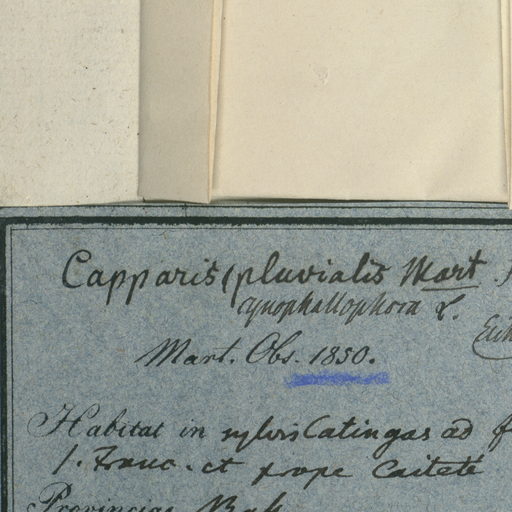 Capparis (pluvialis Mart.)
cynophallophora L.
Eich
Mart. Obs. 1850.
Habitat in sylvis Catingas ad f
S. Franc. et prope Caiteté
Provinciae Bah